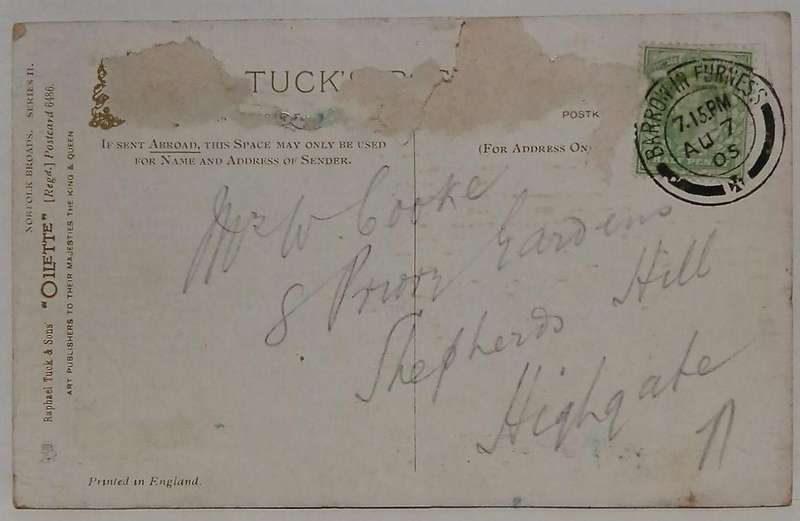 NORFOLK BROADS. SERIES II.
Raphael Tuck & Sons' "OILETTE" [Regd.] Postcard 6486.
ART PUBLISHERS TO THEIR MAJESTIES THE KING & QUEEN
TUCK'S
POSTK
IF SENT ABROAD, THIS SPACE MAY ONLY BE USED
FOR NAME AND ADDRESS OF SENDER.
(FOR ADDRESS ON
BARROW IN FURNESS
7.15 PM
AU 7
05
Mr W. Cooke
8 Priory Gardens
Shepherds Hill
Highgate
N
Printed in England.